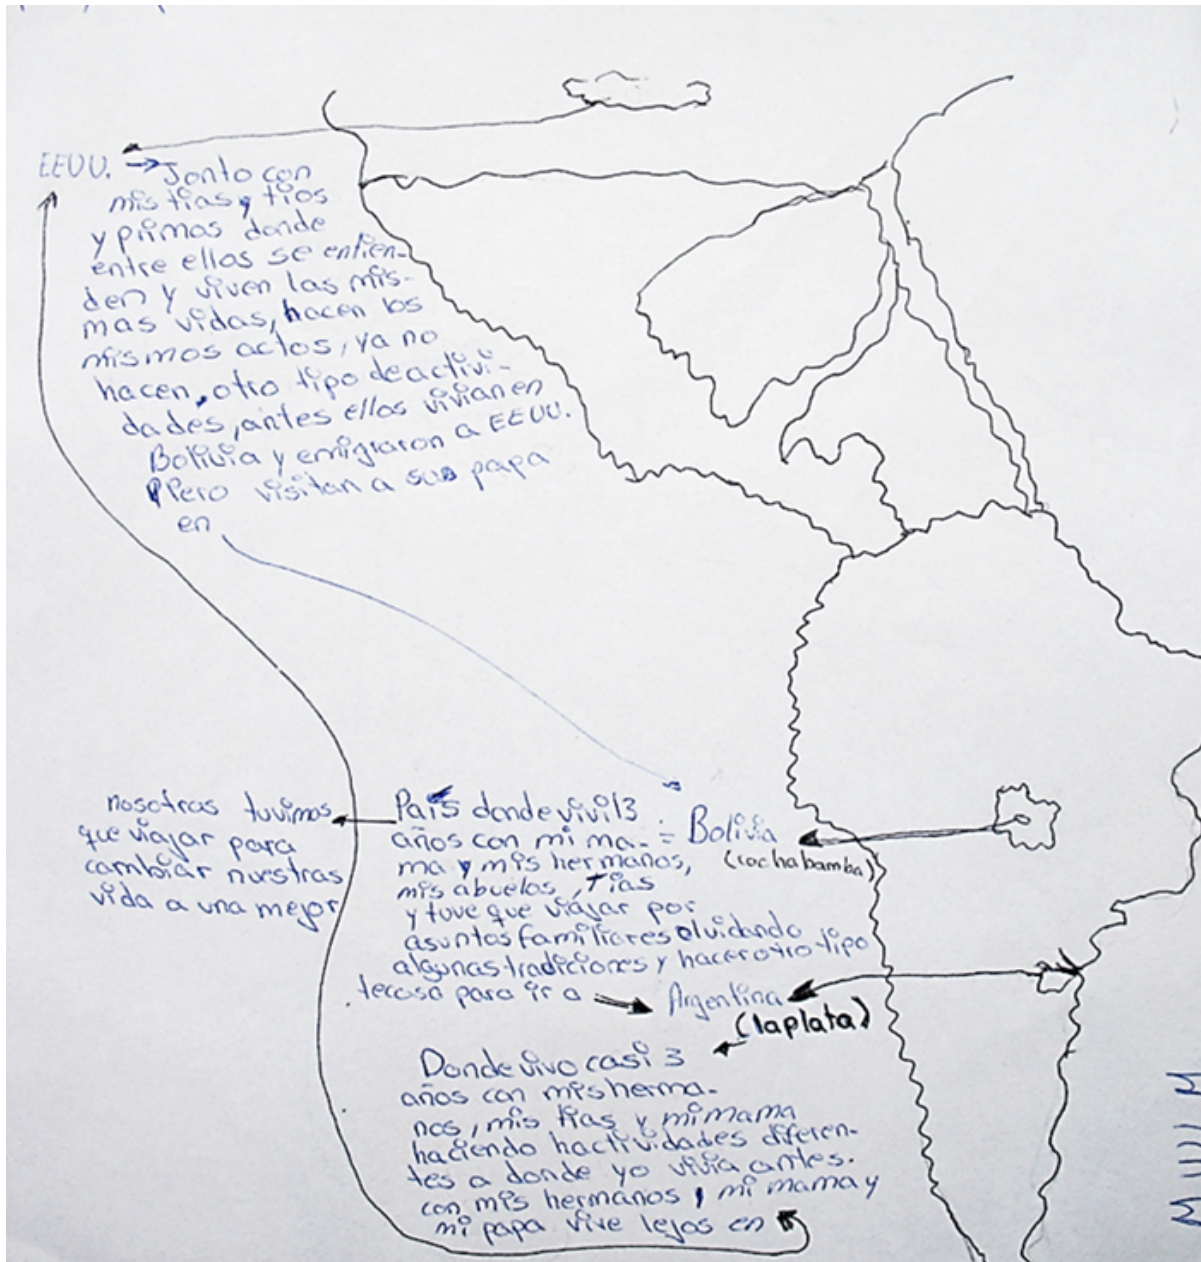 EEUU. → Jonto con
mis tias y tios
y primos donde
entre ellos se entien-
den y viven las mis-
mas vidas, hacen los
mismos actos, ya no
hacen, otro tipo de activi-
dades, antes ellos vivian en
Bolivia y emigraron a EEUU.
Pero visitan a sus papa
en
nosotras tuvimos
que viajar para
cambiar nuestras
vida a una mejor
País donde vivi 13
años con mi ma- = Bolivia
ma y mis hermanos,
(cochabamba)
mis abuelos, Tías
y tuve que viajar por
asuntos familiares olvidando
algunas tradiciones y hacer otro tipo
tecosa para ir a → Argentina
(la plata)
Donde vivo casi 3
años con mis herma-
nos, mis tias y mi mama
haciendo hactividades diferen-
tes a donde yo vivia antes.
con mis hermanos, mi mama y
mi papa vive lejos en